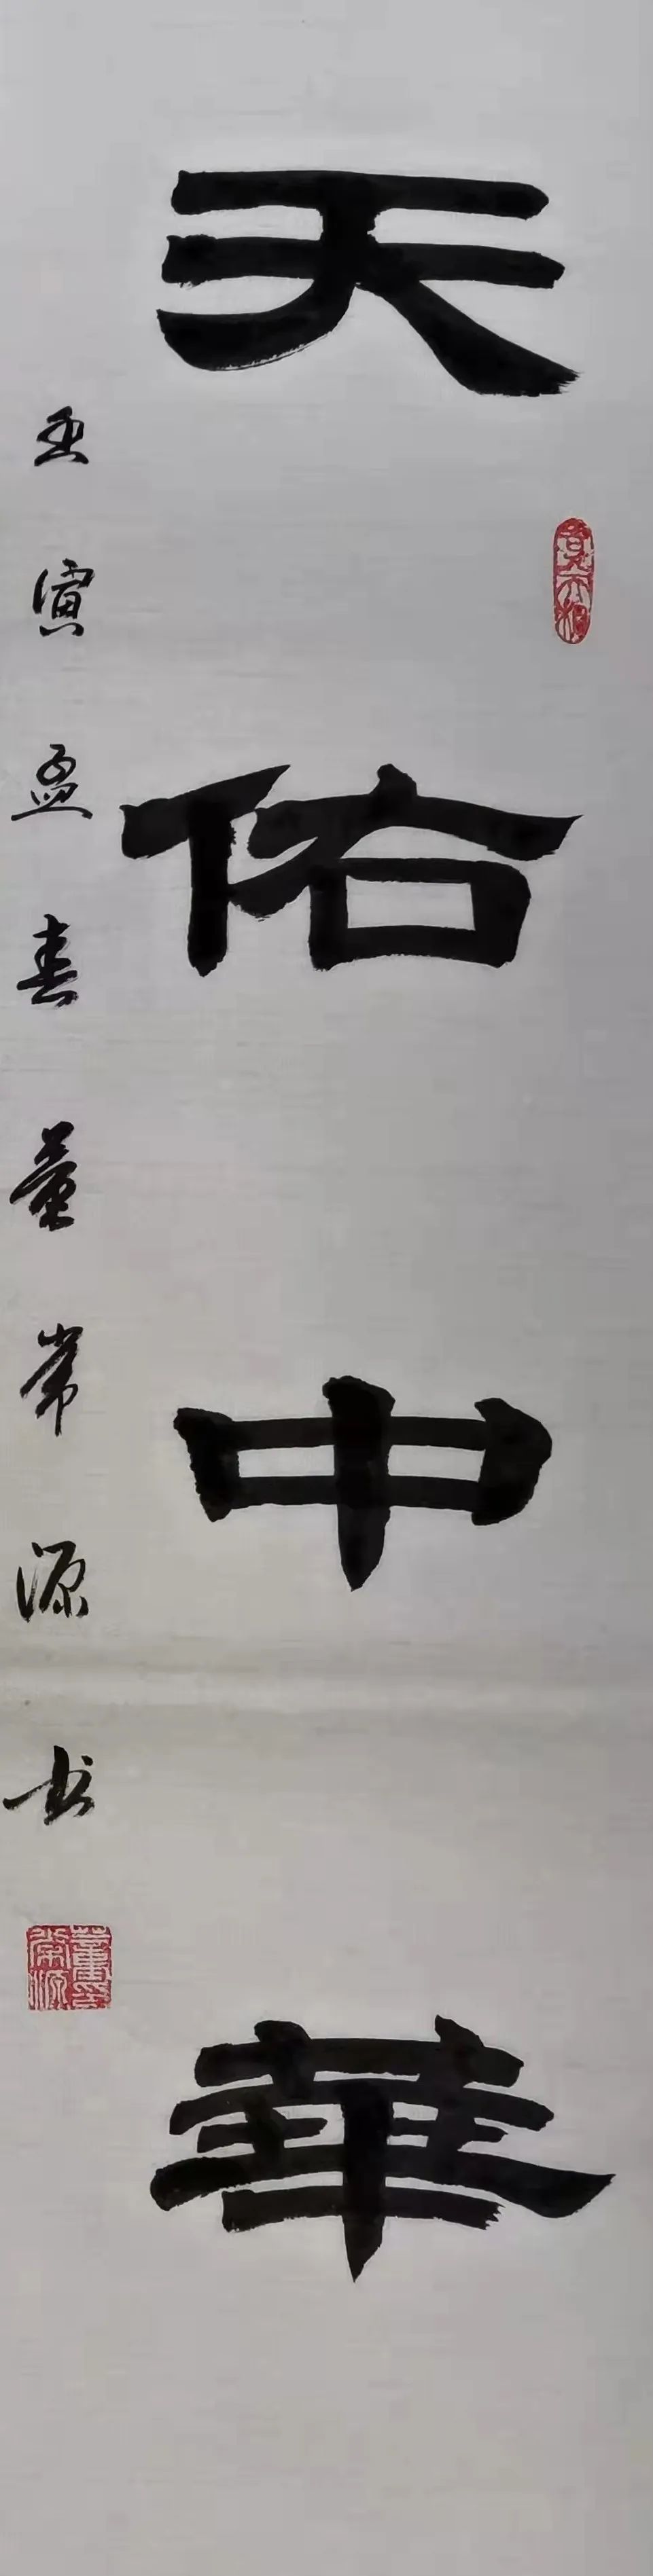 天佑中華
壬寅孟春董常源书
董常源印